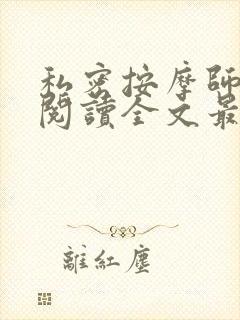 私密按摩師
閱讀全文最
離紅塵